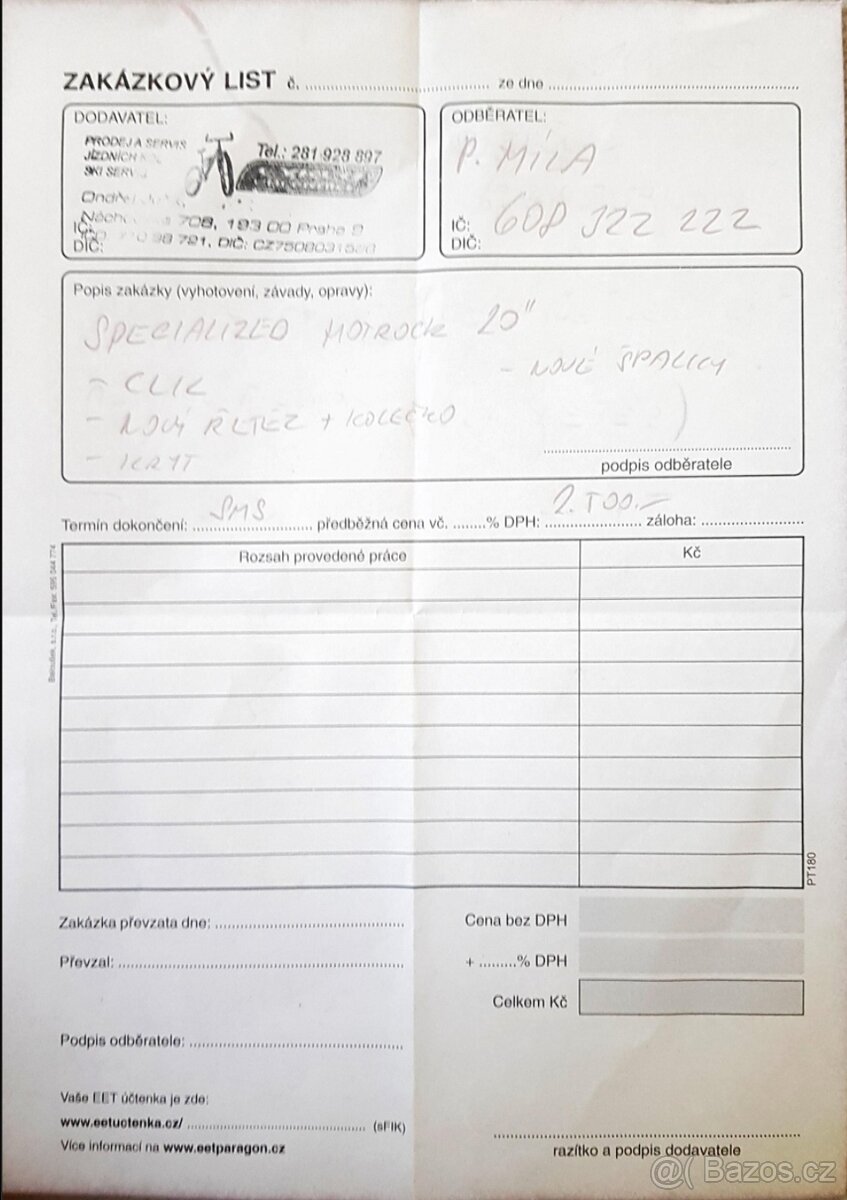 ZAKÁZKOVÝ LIST č. ze dne
DODAVATEL:
PRODEJ A SERVIS
JÍZDNÍCH
SKI SERVIS
Tel.: 281 928 897
Ondřej
708, 193 00 Praha 9
IČ:
DIČ:
791, DIČ:
ODBĚRATEL:
P. MÍLA
IČ: 608 322 222
DIČ:
Popis zakázky (vyhotovení, závady, opravy):
SPECIALIZED HOTROCK 20"
- NOVÉ ŠPALKY
- CLIC
- NOVÝ ŘETĚZ + KOLEČKO
- KRYT
podpis odběratele
Termín dokončení: SMS předběžná cena vč. % DPH: záloha:
Rozsah provedené práce Kč
Tel./Fax: 595 044 774
PT180
Zakázka převzata dne:
Převzal:
Podpis odběratele:
Cena bez DPH
+ % DPH
Celkem Kč
Vaše EET účtenka je zde:
www.eetuctenka.cz/ (sFIK)
Více informací na www.eetparagon.cz
razítko a podpis dodavatele
@( Bazos.cz